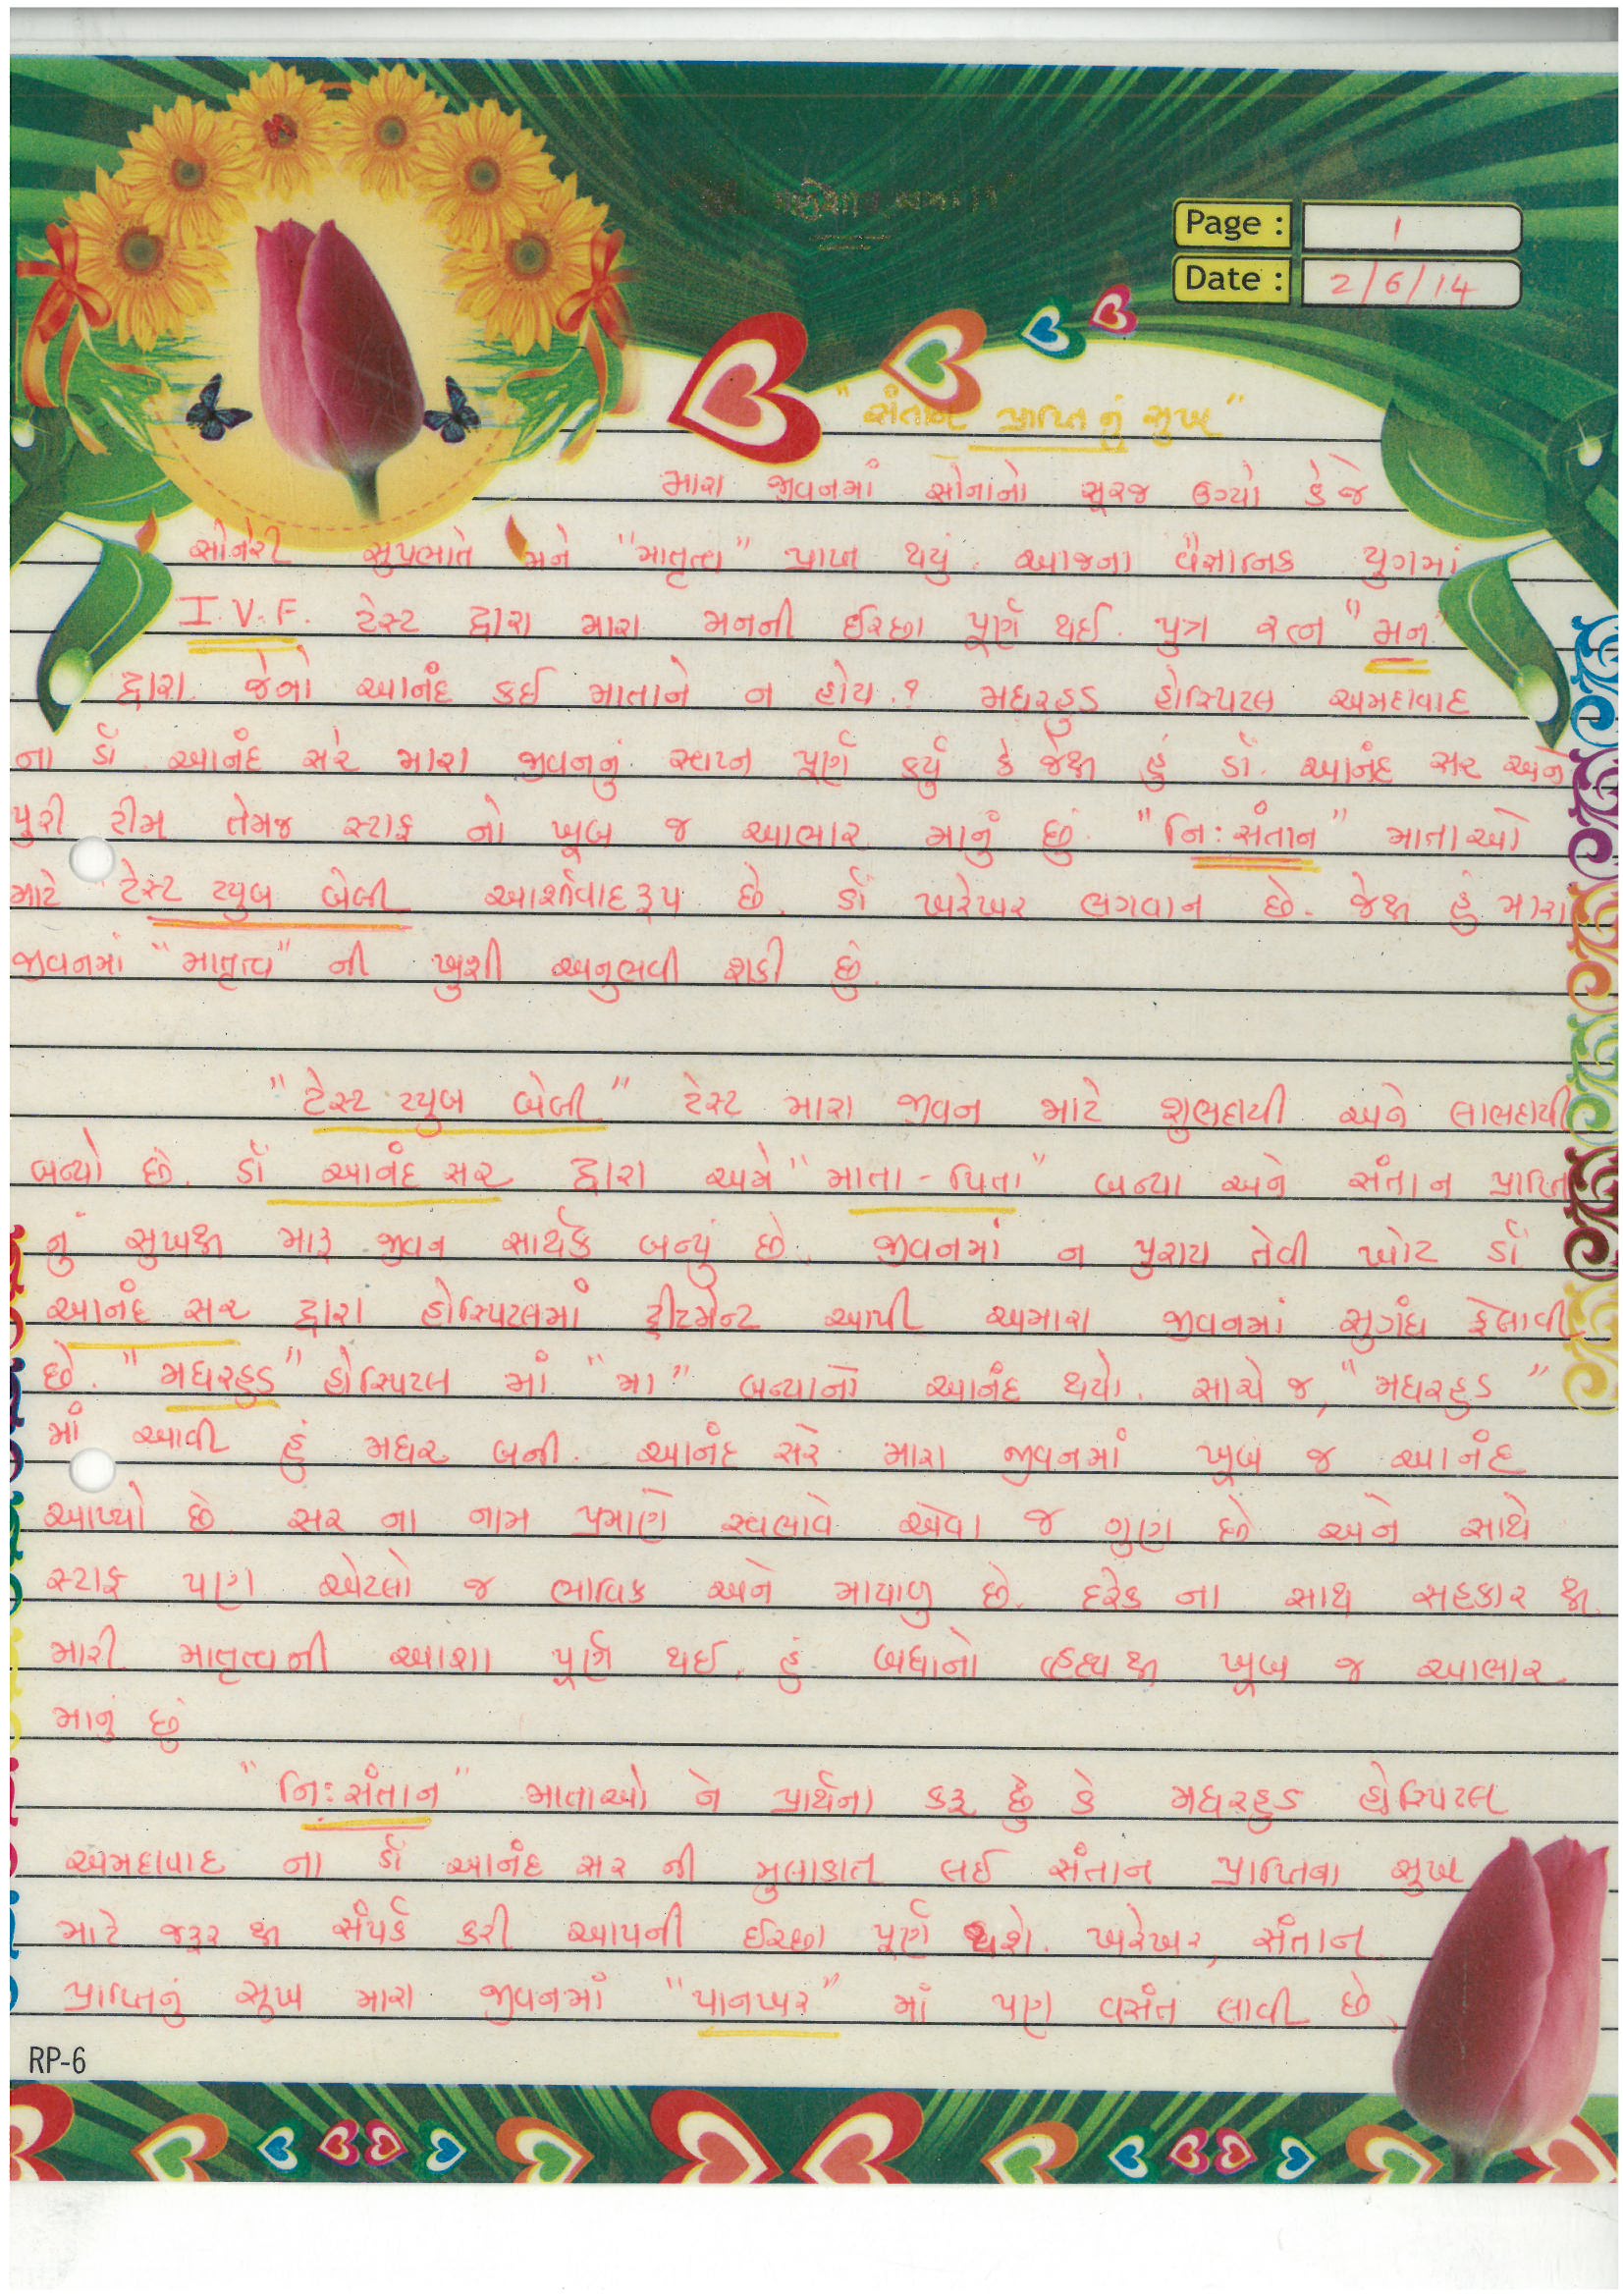 Page : 1
Date : 2/6/14
"સંતાન પ્રાપ્તિ નું સુખ"
મારા જીવનમાં સોનાનો સૂરજ ઉગ્યો કે જે
સોનેરી સુપ્રભાતે મને "માતૃત્વ" પ્રાપ્ત થયું. આજના વૈજ્ઞાનિક યુગમાં
I.V.F. ટેસ્ટ દ્વારા મારા મનની ઈચ્છા પૂર્ણ થઈ. પુત્ર રત્ન "મન"
દ્વારા. જેનો આનંદ કઈ માતાને ન હોય.? મધરહુડ હોસ્પિટલ અમદાવાદ
ના ડૉ. આનંદ સરે મારા જીવનનું સ્વપ્ન પૂર્ણ કર્યુ કે જેથી હું ડૉ. આનંદ સર અને
પુરી ટીમ તેમજ સ્ટાફ નો ખૂબ જ આભાર માનું છું. "નિ:સંતાન" માતાઓ
માટે "ટેસ્ટ ટ્યુબ બેબી આર્શીવાદરૂપ છે. ડૉ ખરેખર ભગવાન છે. જેથી હું મારા
જીવનમાં "માતૃત્વ" ની ખુશી અનુભવી શકી છું.
"ટેસ્ટ ટ્યુબ બેબી" ટેસ્ટ મારા જીવન માટે શુભદાયી અને લાભદાયી
બન્યો છે. ડૉ આનંદ સર દ્વારા અમે "માતા - પિતા" બન્યા અને સંતાન પ્રાપ્તિ
નું સુખથી મારૂ જીવન સાર્થક બન્યું છે. જીવનમાં ન પુરાય તેવી ખોટ ડૉ
આનંદ સર દ્વારા હોસ્પિટલમાં ટ્રીટમેન્ટ આપી અમારા જીવનમાં સુગંધ ફેલાવી
છે. "મધરહુડ" હોસ્પિટલ માં "મા" બન્યાનો આનંદ થયો. સાચે જ, "મધરહુડ"
માં આવી હું મધર બની. આનંદ સરે મારા જીવનમાં ખૂબ જ આનંદ
આપ્યો છે. સર ના નામ પ્રમાણે સ્વભાવે એવા જ ગુણ છે અને સાથે
સ્ટાફ પણ એટલો જ ભાવિક અને માયાળુ છે. દરેક ના સાથ સહકાર થી
મારી માતૃત્વની આશા પૂર્ણ થઈ. હું બધાનો હ્રદયથી ખૂબ જ આભાર
માનું છું
"નિ:સંતાન" માતાઓ ને પ્રાર્થના કરૂ છું કે મધરહુડ હોસ્પિટલ
અમદાવાદ ના ડૉ આનંદ સર ની મુલાકાત લઈ સંતાન પ્રાપ્તિના સુખ
માટે જરૂર થી સંપર્ક કરી આપની ઈચ્છા પૂર્ણ થશે. ખરેખર, સંતાન
પ્રાપ્તિનું સુખ મારા જીવનમાં "પાનખર" માં પણ વસંત લાવી છે.
RP-6